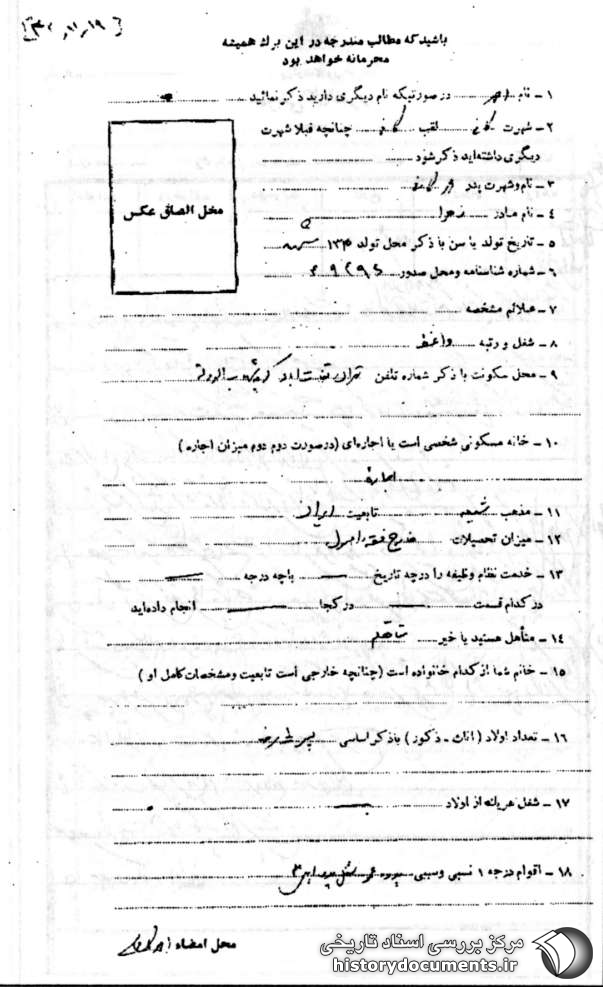 [۴۲,۱۱,۱۹]
باشید که مطالب مندرجه در این برگ همیشه
محرمانه خواهد بود
۱ - نام احمد در صورتیکه نام دیگری دارید ذکر نمائید
۲ - شهرت کافی لقب کافی چنانچه قبلا شهرت
دیگری داشته‌اید ذکر شود
۳ - نام و شهرت پدر
۴ - نام مادر زهرا
۵ - تاریخ تولد یا سن با ذکر محل تولد
۶ - شماره شناسنامه و محل صدور
محل الصاق عکس
۷ - علائم مشخصه
۸ - شغل و رتبه واعظ
۹ - محل سکونت با ذکر شماره تلفن تهران
۱۰ - خانه مسکونی شخصی است یا اجاره‌ای (در صورت دوم دوم میزان اجاره)
اجاره
۱۱ - مذهب شیعه تابعیت ایران
۱۲ - میزان تحصیلات خارج فقه و اصول
۱۳ - خدمت نظام وظیفه را در چه تاریخ — با چه درجه —
در کدام قسمت — در کجا — انجام داده‌اید
۱۴ - متأهل هستید یا خیر متأهلم
۱۵ - خانم شما از کدام خانواده است (چنانچه خارجی است تابعیت و مشخصات کامل او)
۱۶ - تعداد اولاد (اناث - ذکور) با ذکر اساسی
۱۷ - شغل هریك از اولاد
۱۸ - اقوام درجه ۱ نسبی و سببی
محل امضاء
مرکز بررسی اسناد تاریخی
historydocuments.ir